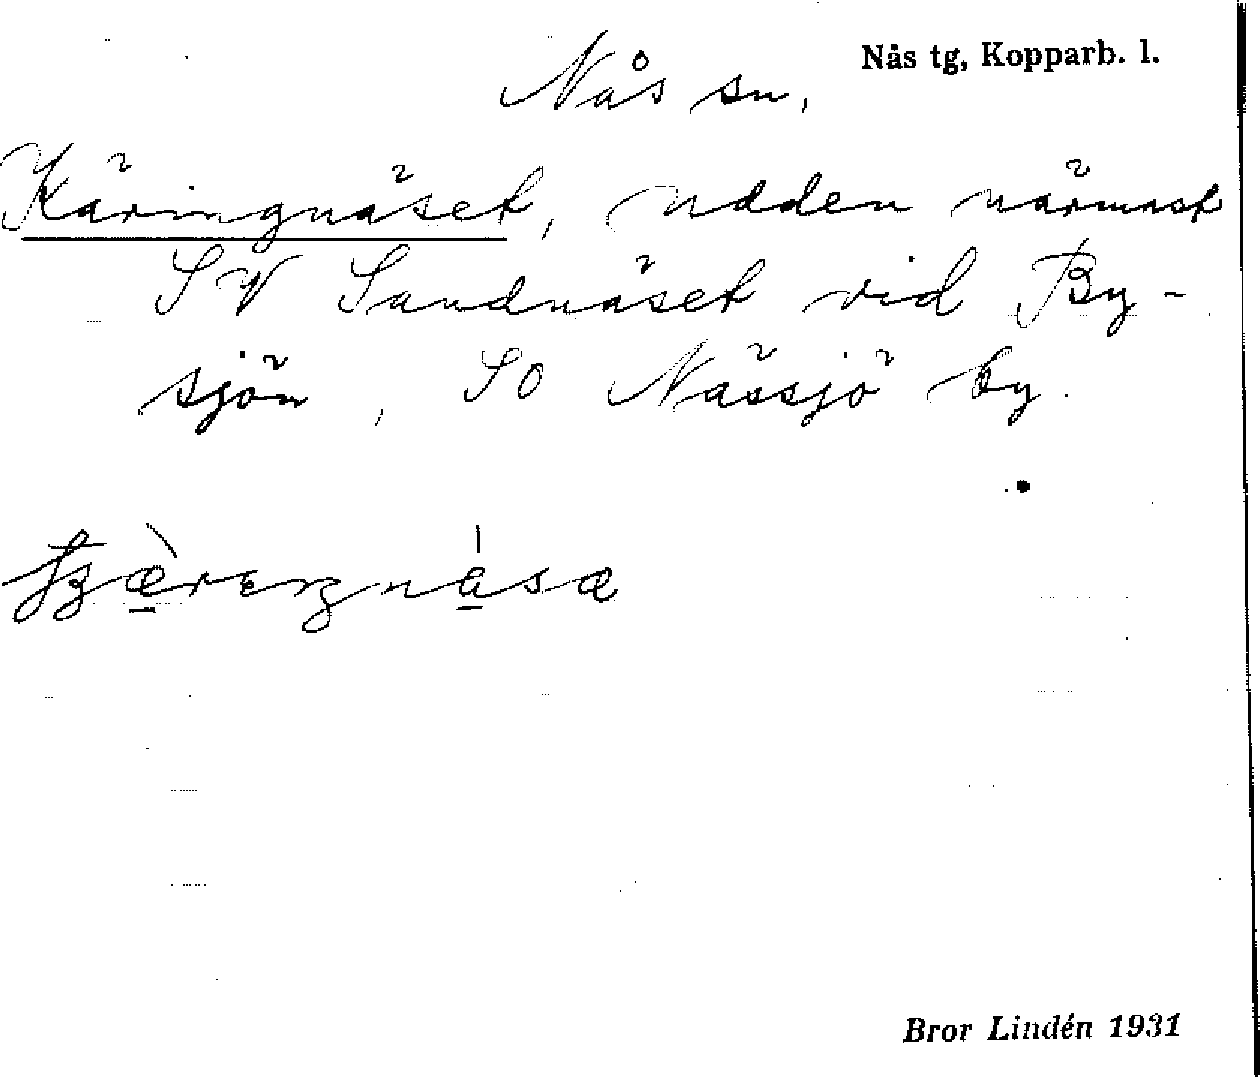 Nås tg, Kopparb. l.
Nås sn,
Käringnäset, udden närmast
SV Sandnäset vid By-
sjön, SO Nässjö by.
Bror Lindén 1931